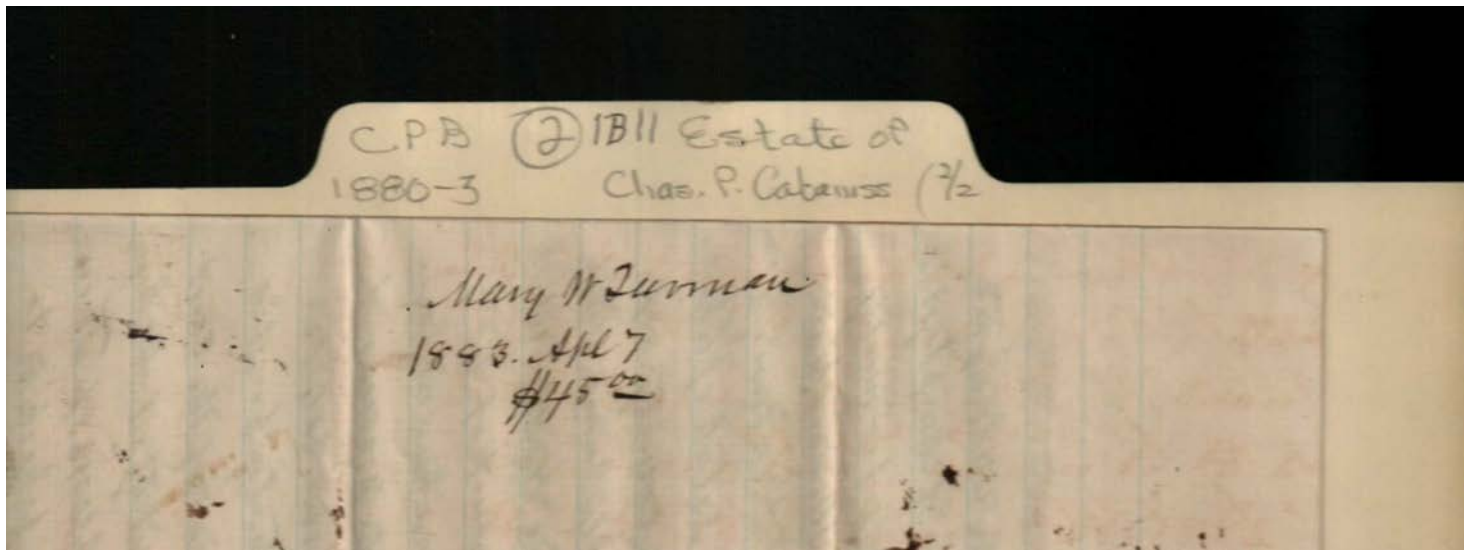 CPB ② 1B11 Estate of
1880-3 Chas. P. Cabaniss (2/2
Mary W Turman
1883. Apl 7
$45 00